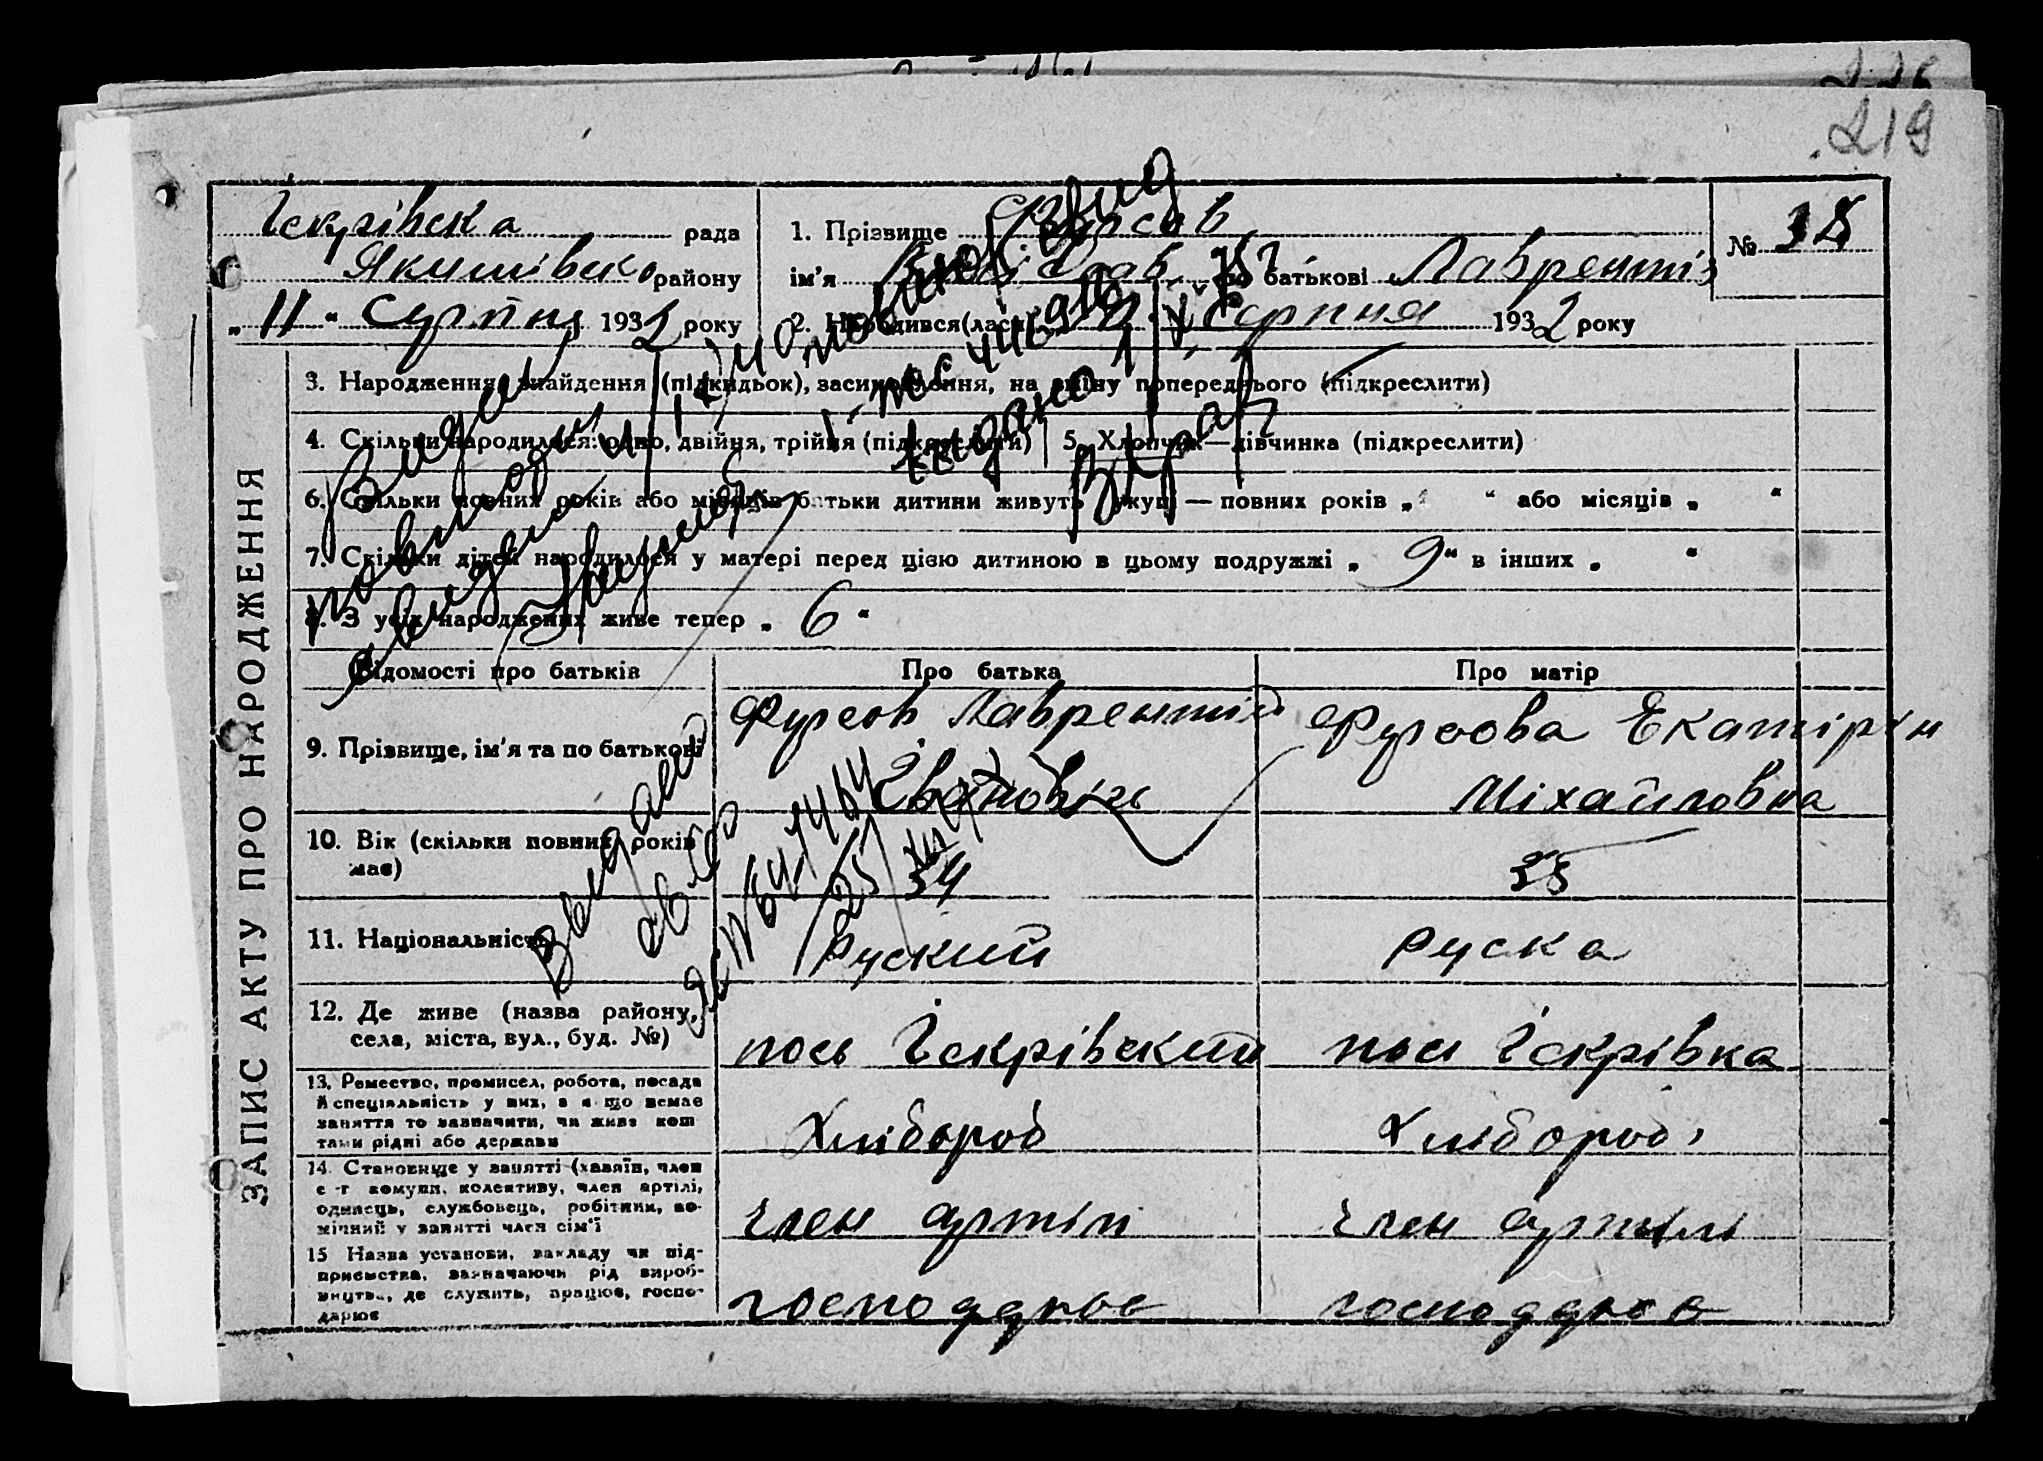 219
Іскрівска рада
Якимівсько району
„ 11 “ Серпня 1932 року
1. Прізвище Фурсов
ім'я по батькові Лаврентів
2. Народився(лася) Серпня 1932 року
№ 38
ЗАПИС АКТУ ПРО НАРОДЖЕННЯ
3. Народження, знайдення (підкидьок), засиновлення, на зміну попереднього (підкреслити)
4. Скільки народилося: одно, двійня, трійня (підкреслити)
5. Хлопчик—дівчинка (підкреслити)
6. Скільки повних років або місяців батьки дитини живуть вкупі — повних років „ “ або місяців „ “
7. Скільки дітей народилося у матері перед цією дитиною в цьому подружжі „ 9 “ в інших „ “
8. З усіх народжених живе тепер „ 6 “
Відомості про батьків Про батька Про матір
9. Прізвище, ім'я та по батькові
Фурсов Лаврентій
Івановіч
Фурсова Екатірін
Міхайловна
10. Вік (скільки повних років має)
34
35
11. Національність
Руский
руска
12. Де живе (назва району, села, міста, вул., буд. №)
посьо Іскрівский
посьо Іскрівка
13. Ремество, промисел, робота, посада
й спеціяльність у них, а якщо немає
заняття то зазначити, чи живе кош-
тами рідні або держави
Хлібороб
Хлібороб
14. Становище у занятті (хазяїн, член
с.-г комуни, колективу, член артілі,
одинець, службовець, робітник, по-
мічний у занятті член сім'ї
член артіл
член артилі
15 Назва установи, закладу чи під-
приємства, зазначаючи рід вироб-
ництва, де служить, працює, госпо-
дарює
господарює
господарює
Видан
повторн
свидет
Выдано